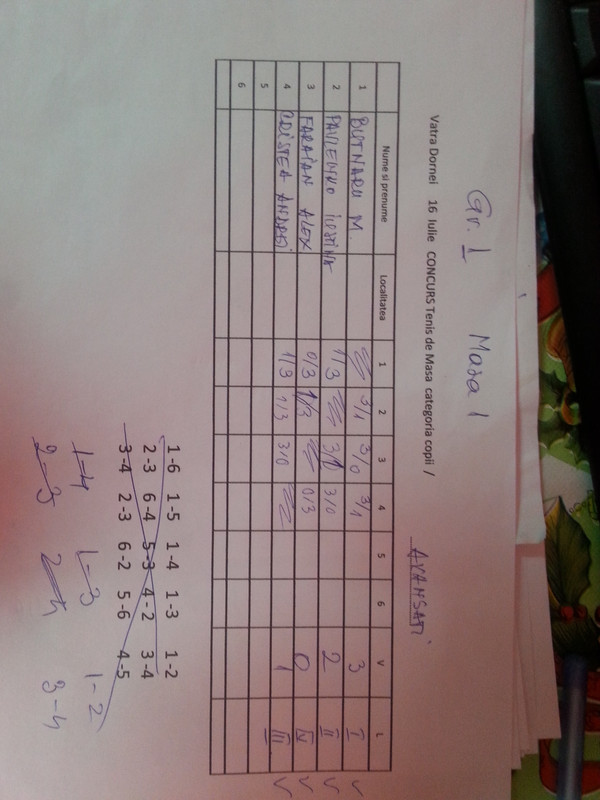 Gr. 1 Masa 1
Vatra Dornei 16 Iulie CONCURS Tenis de Masa categoria copii / AVANSATI
Nume si prenume Localitatea 1 2 3 4 5 6 V L
1 BUTNARU M. 3/1 3/0 3/1 3 I
2 PAVLENKO IUSTINA 1/3 3/0 2 II
3 ALEX 0/3 1/3 0/3 0 IV
4 CRISTEA ANDREI 1/3 1/3 3/0 1 III
5
6
1-6 1-5 1-4 1-3 1-2
2-3 6-4 5-3 4-2 3-4
3-4 2-3 6-2 5-6 4-5
1-4 1-3 1-2
2-3 2-4 3-4